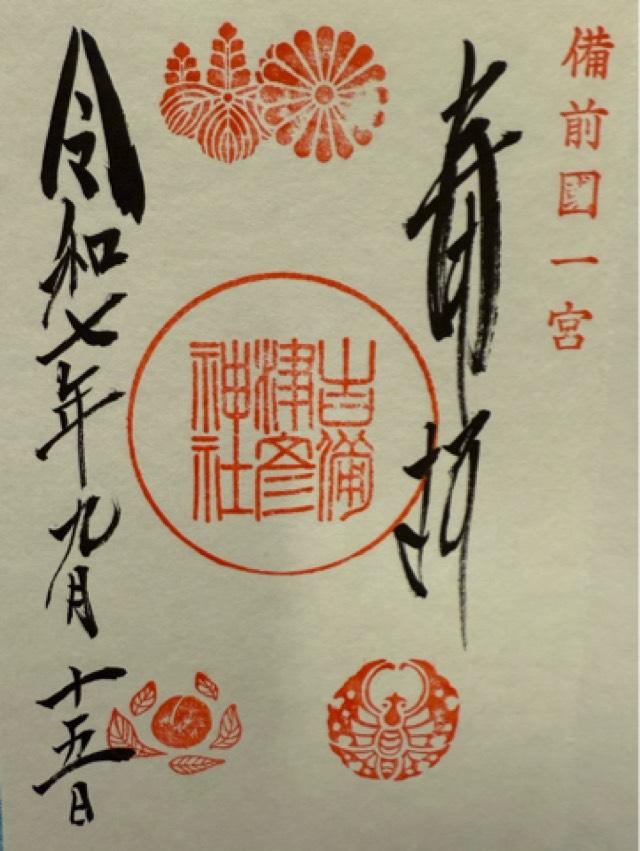 備前國一宮
奉拝
吉備
津彦
神社
令和七年九月十五日